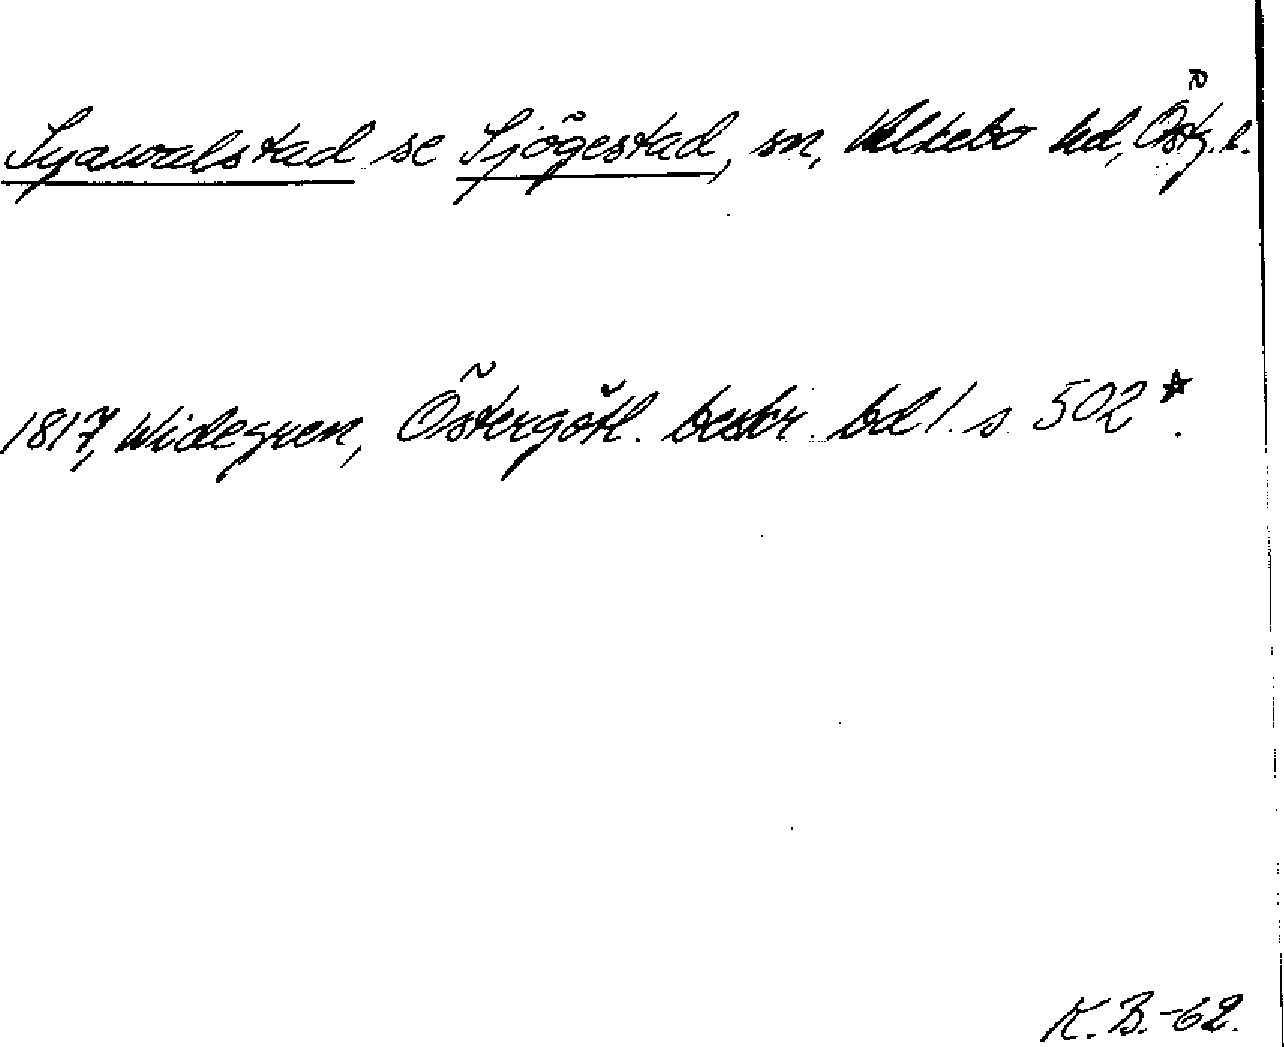 Syawalstad se Sjögestad, sn, Valkebo hd, Östg. l.
1817, Widegren, Östergötl. beskr. bd 1. s. 502*.
K. B. -62.